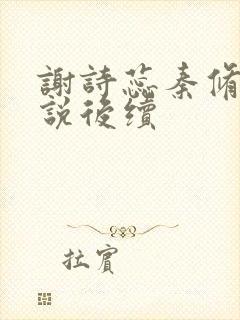 謝詩蕊秦脩
説後續
拉賓